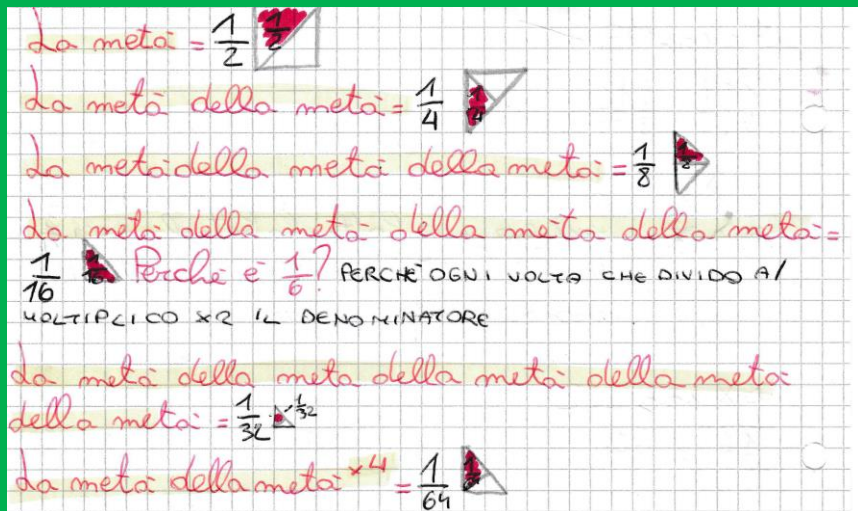 La metà = 1/2 1/2
La metà della metà = 1/4 1/4
La metà della metà della metà = 1/8 1/8
La metà della metà della metà della metà =
1/16 1/16 Perché è 1/6? PERCHÉ OGNI VOLTA CHE DIVIDO A/
MOLTIPLICO x2 IL DENOMINATORE
La metà della meta della metà della metà
della metà = 1/32 1/32
La metà della metà x4 = 1/64